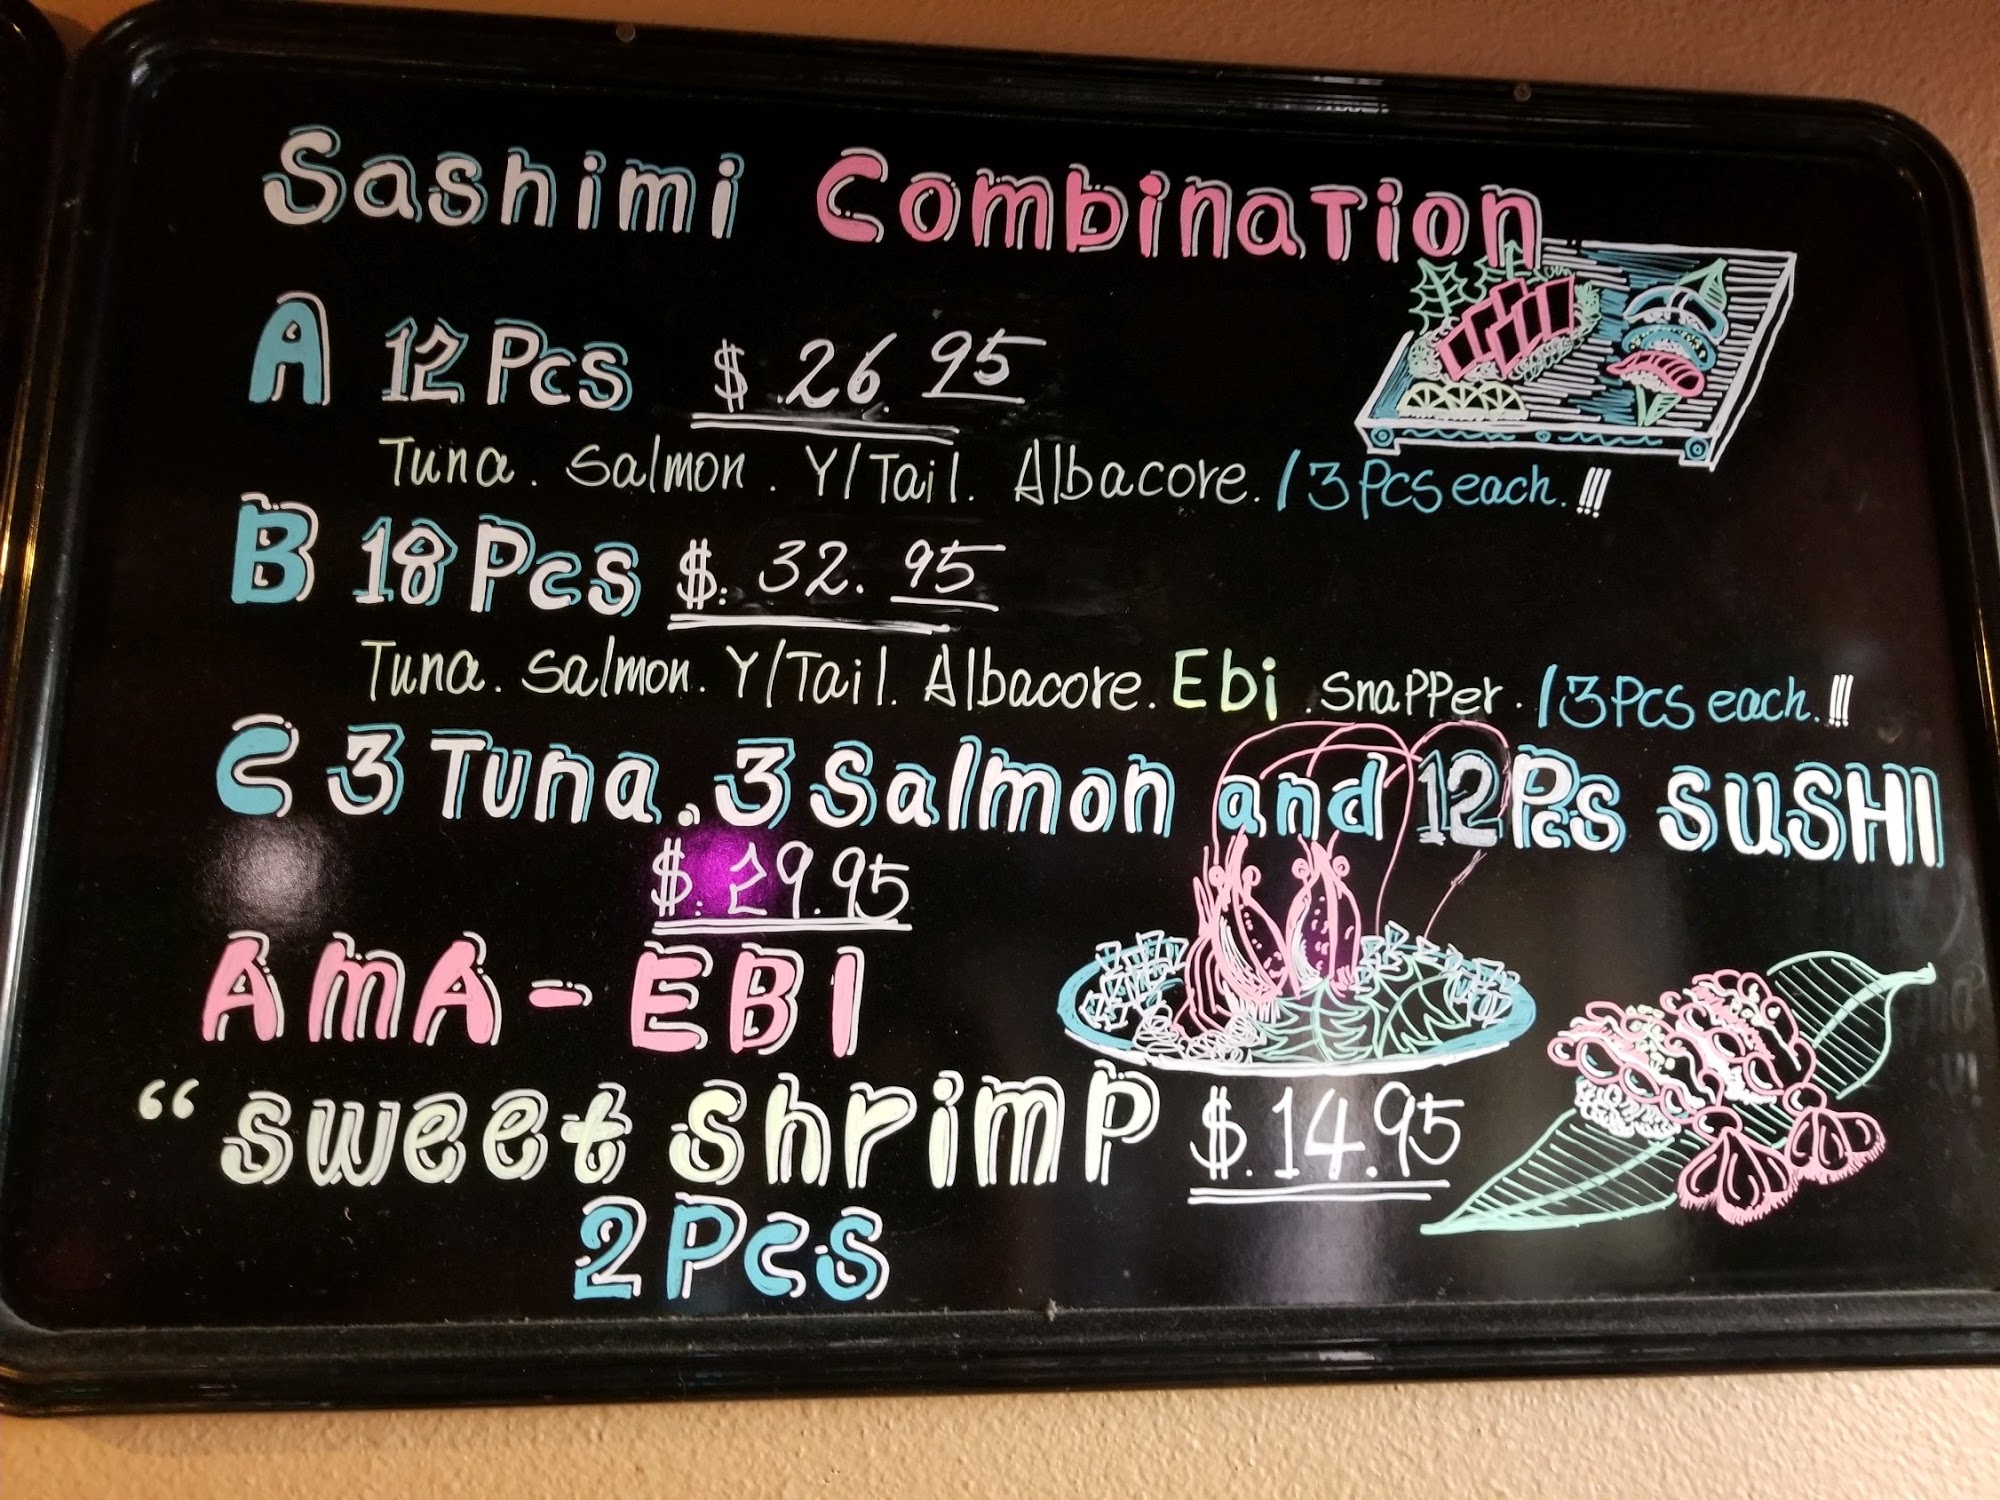 Sashimi Combination
A 12 Pcs $.26.95
Tuna. Salmon. Y/Tail. Albacore. / 3 Pcs each. !!!
B 18 Pcs $. 32. 95
Tuna. Salmon. Y/Tail. Albacore. Ebi. Snapper. / 3 Pcs each. !!!
C 3 Tuna. 3 Salmon and 12 Pcs SUSHI
$. 29.95
AMA-EBI
“sweet shrimp $.14.95
2 Pcs